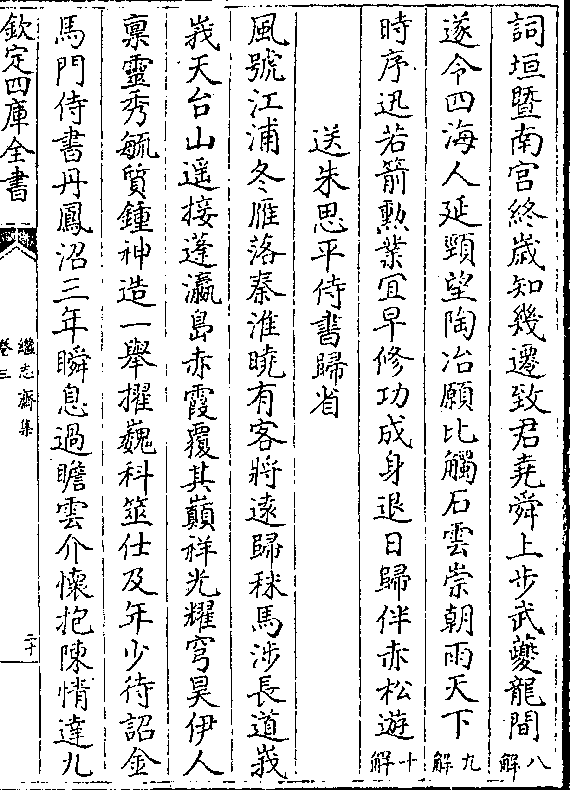 詞垣暨南宫終歲知幾遷致君堯舜上步武夔龍間八解
遂令四海人延頸望陶冶願比觸石雲崇朝雨天下九解
時序迅若箭勲業宜早修功成身退日歸伴赤松遊十解
送朱思平侍書歸省
風號江浦冬雁落秦淮曉有客將遠歸秣馬涉長道峩
峩天台山遥接蓬瀛島赤霞覆其巔祥光耀穹昊伊人
禀靈秀毓質鍾神造一舉擢巍科筮仕及年少待詔金
馬門侍書丹鳳沼三年瞬息過瞻雲介懐抱陳情達九
欽定四庫全書
繼志齋集
卷三
二十